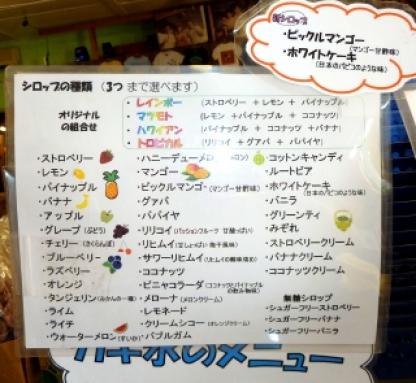 新シロップ
・ピックルマンゴー
(マンゴー甘酢味)
・ホワイトケーキ
(日本のパピコのような味)
シロップの種類 (3つ まで選べます)
オリジナルの組合せ
・レインボー (ストロベリー + レモン + パイナップル)
・マツモト (レモン + パイナップル + ココナッツ)
・ハワイアン (パイナップル + ココナッツ + バナナ)
・トロピカル (リリコイ + グアバ + パパイヤ)
・ストロベリー
・レモン
・パイナップル
・バナナ
・アップル
・グレープ (ぶどう)
・チェリー (さくらんぼ)
・ブルーベリー
・ラズベリー
・オレンジ
・タンジェリン (みかんの一種)
・ライム
・ライチ
・ウォーターメロン (すいか)
・ハニーデューメロン
・マンゴー
・ピックルマンゴー (マンゴー甘酢味)
・グァバ
・パパイヤ
・リリコイ (パッションフルーツ 甘酸っぱい)
・リヒムイ (甘しょっぱい 梅干風味)
・サワーリヒムイ
・ココナッツ
・ピニャコラーダ (ココナッツとパイナップルの飲み物味)
・メローナ (メロンクリーム)
・レモネード
・クリームシコー (オレンジクリーム)
・バブルガム
・コットンキャンディ
・ルートビア
・ホワイトケーキ
(日本のパピコのような味)
・バニラ
・グリーンティ
・みぞれ
・ストロベリークリーム
・バナナクリーム
・ココナッツクリーム
無糖シロップ
・シュガーフリーストロベリー
・シュガーフリーバナナ
・シュガーフリーバニラ
カキ氷のメニュー